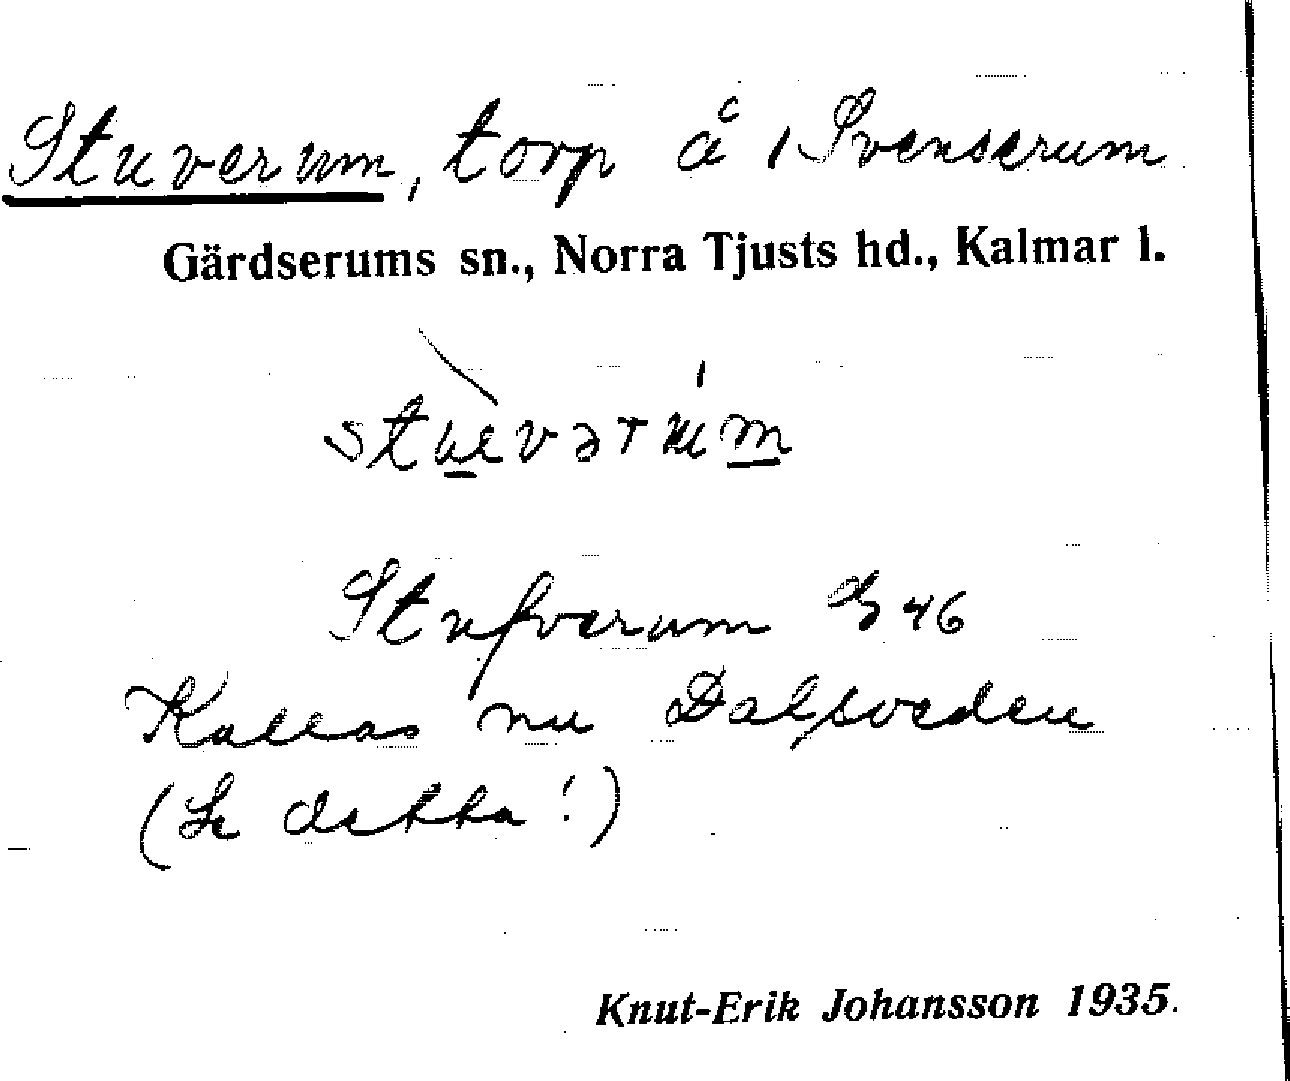 Stuverum, torp å 1 Svenserum
Gärdserums sn., Norra Tjusts hd., Kalmar l.
Stufverum G 46
Kallas nu Dalsveden
(Se detta!)
Knut-Erik Johansson 1935.